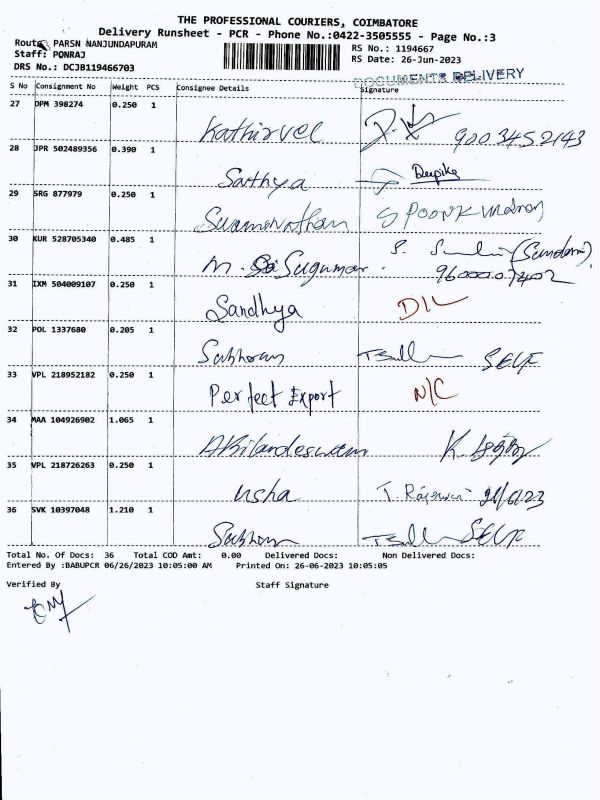 THE PROFESSIONAL COURIERS, COIMBATORE
Delivery Runsheet - PCR - Phone No.:0422-3505555 - Page No.:3
Route: PARSN NANJUNDAPURAM
Staff: PONRAJ
RS No.: 1194667
DRS No.: DCJB119466703
RS Date: 26-Jun-2023
DOCUMENTS DELIVERY
S No Consignment No Weight PCS Consignee Details Signature
27 DPM 398274 0.250 1 Kathirvel 900 3452143
28 JPR 502489356 0.390 1 Sathya Deepika
29 SRG 877979 0.250 1
30 KUR 528705340 0.485 1 M. Sugumar.
31 IXM 504009107 0.250 1 Sandhya D/L
32 POL 1337680 0.205 1 SELF
33 VPL 218952182 0.250 1 Perfect Export N/C
34 MAA 104926902 1.065 1
35 VPL 218726263 0.250 1 Usha
36 SVK 10397048 1.210 1 SELF
Total No. Of Docs: 36 Total COD Amt: 0.00 Delivered Docs: Non Delivered Docs:
Entered By :BABUPCR 06/26/2023 10:05:00 AM Printed On: 26-06-2023 10:05:05
Verified By Staff Signature